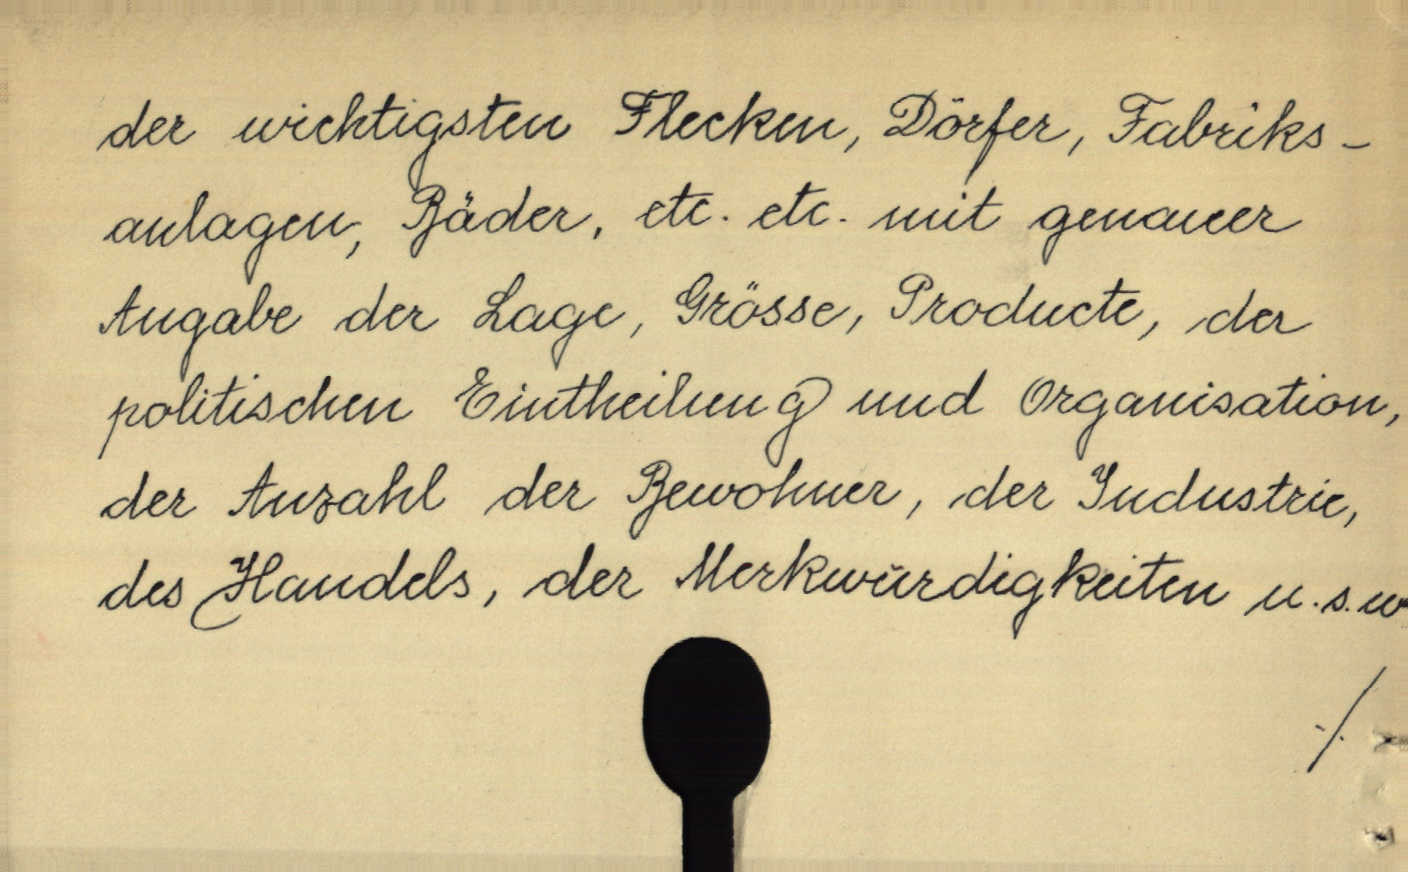 der wichtigsten Flecken, Dörfer, Fabriks-
anlagen, Bäder, etc. etc. mit genauer
Angabe der Lage, Grösse, Producte, der
politischen Eintheilung und Organisation,
der Anzahl der Bewohner, der Industrie,
des Handels, der Merkwürdigkeiten u.s.w
./.